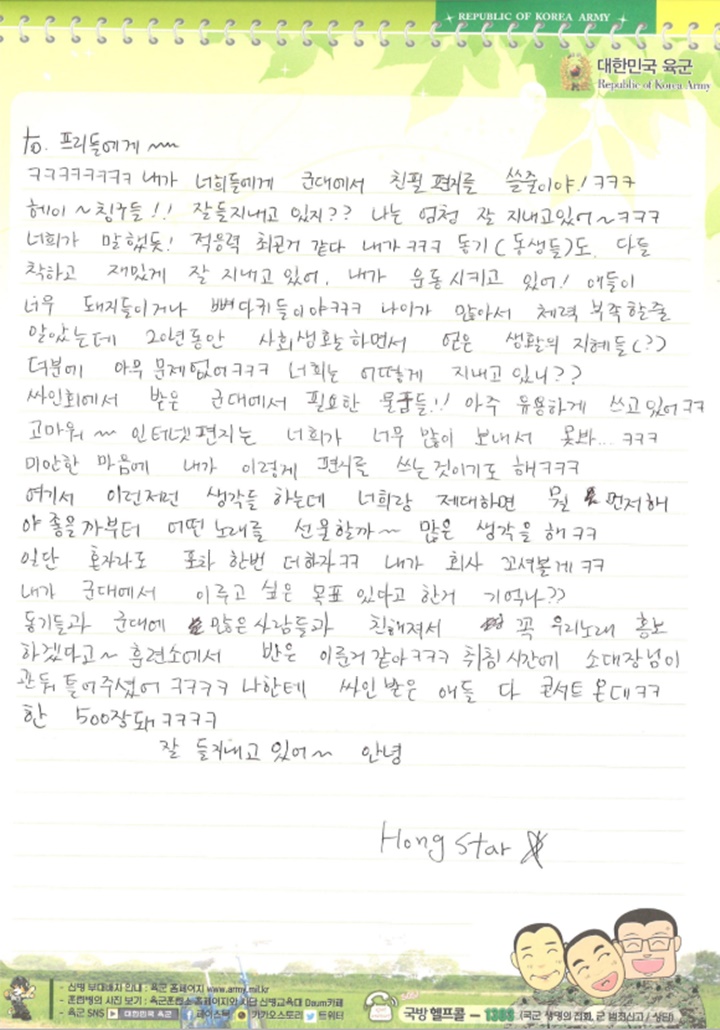 REPUBLIC OF KOREA ARMY
대한민국 육군
Republic of Korea Army
to. 프리들에게 ~~
ㅋㅋㅋㅋㅋㅋㅋㅋ 내가 너희들에게 군대에서 친필 편지를 쓸줄이야! ㅋㅋㅋ
헤이 ~ 칭구들!! 잘들지내고 있지?? 나는 엄청 잘 지내고있어~ㅋㅋㅋ
너희가 말했듯! 적응력 최곤거 같다 내가 ㅋㅋㅋ 동기(동생들)도 다들
착하고 재밌게 잘 지내고 있어. 내가 운동시키고 있어! 애들이
너무 돼지들이거나 뼈다귀들이야ㅋㅋㅋ 나이가 많아서 체력 부족할줄
알았는데 20년동안 사회생활하면서 얻은 생활의 지혜들(?)
덕분에 아무 문제없어ㅋㅋㅋ 너희는 어떻게 지내고 있니??
싸인회에서 받은 군대에서 필요한 물품들!! 아주 유용하게 쓰고있어ㅋㅋ
고마워 ~ 인터넷편지는 너희가 너무 많이 보내서 못봐... ㅋㅋㅋ
미안한 마음에 내가 이렇게 편지를 쓰는것이기도 해ㅋㅋㅋ
여기서 이런저런 생각들 하는데 너희랑 제대하면 뭘 먼저해
야 좋을까부터 어떤노래를 선물할까~ 많은 생각을 해 ㅋㅋ
일단 혼자라도 포차 한번 더하자ㅋㅋ 내가 회사 꼬셔볼게 ㅋㅋ
내가 군대에서 이루고 싶은 목표 있다고 한거 기억나??
동기들과 군대에 많은사람들과 친해져서 꼭 우리노래 홍보
하겠다고~ 훈련소에서 반은 이룬거 같아ㅋㅋㅋ 취침시간에 소대장님이
관둬 틀어주셨어 ㅋㅋㅋㅋ 나한테 싸인받은 애들 다 콘서트 온대ㅋㅋ
한 500장돼ㅋㅋㅋㅋ
잘 들지내고 있어~ 안녕
Hong Star
- 신병 부대배치 안내 : 육군 홈페이지 www.army.mil.kr
- 훈련병의 사진 보기 : 육군훈련소 홈페이지와 사단 신병교육대 Daum카페
- 육군 SNS 대한민국 육군 페이스북 카카오스토리 트위터
국방 헬프콜 - 1303 (국군 생명의 전화, 군 범죄신고 / 상담)